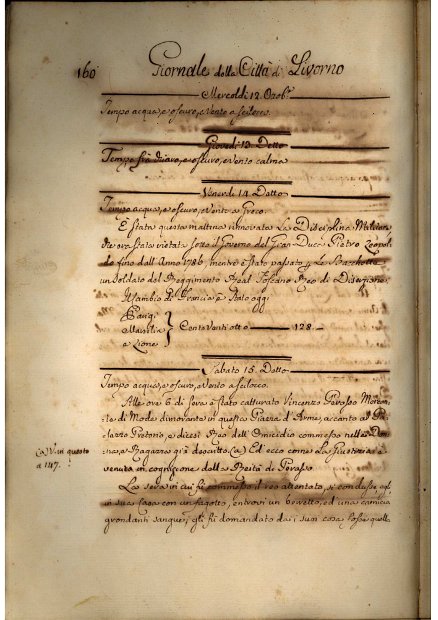 160
Giornale della Città di Livorno
Mercoldì 12. Ottob.e
Tempo acqua, e oscuro, e Vento a scilocco.
Giovedì 13. Detto
Tempo fra chiaro, e oscuro, e Vento calma
Venerdì 14. Detto
Tempo acqua, e oscuro, e Vento a Greco.
È stata questa mattina rinnovata La Disciplina Militare,
che era stata vietata sotto il Governo del Gran Duca Pietro Leopol-
do fino dall'Anno 1786 mentre è stato passato p. Le Bacchette
un soldato del Reggimento Real Toscano Reo di Diserzione.
Il Cambio di Francia è stato oggi
Parigi
Marsilia
e Lione
Cento Venti otto 128.
Sabato 15. Detto
Tempo acqua, e oscuro, e Vento a scilocco.
Alle ore 6 di sera è stato catturato Vincenzo Perasso Mercan-
te di Mode dimorante in questa Piazza d'Arme, accanto al Pa-
lazzo Pretorio, e dicesi Reo dell'Omicidio commesso nella
e Ragazzo già descritto (a) Ed ecco come La Giustizia è
venuta in cognizione della Reità di Perasso.
(a) V. in questo
a 147.
La sera in cui fù commesso il reo attentato, si condusse egli
in sua casa con un fagotto, entrovi un and una camicia
grondanti sangue; gli fù domandato dai suoi cosa fosse quella